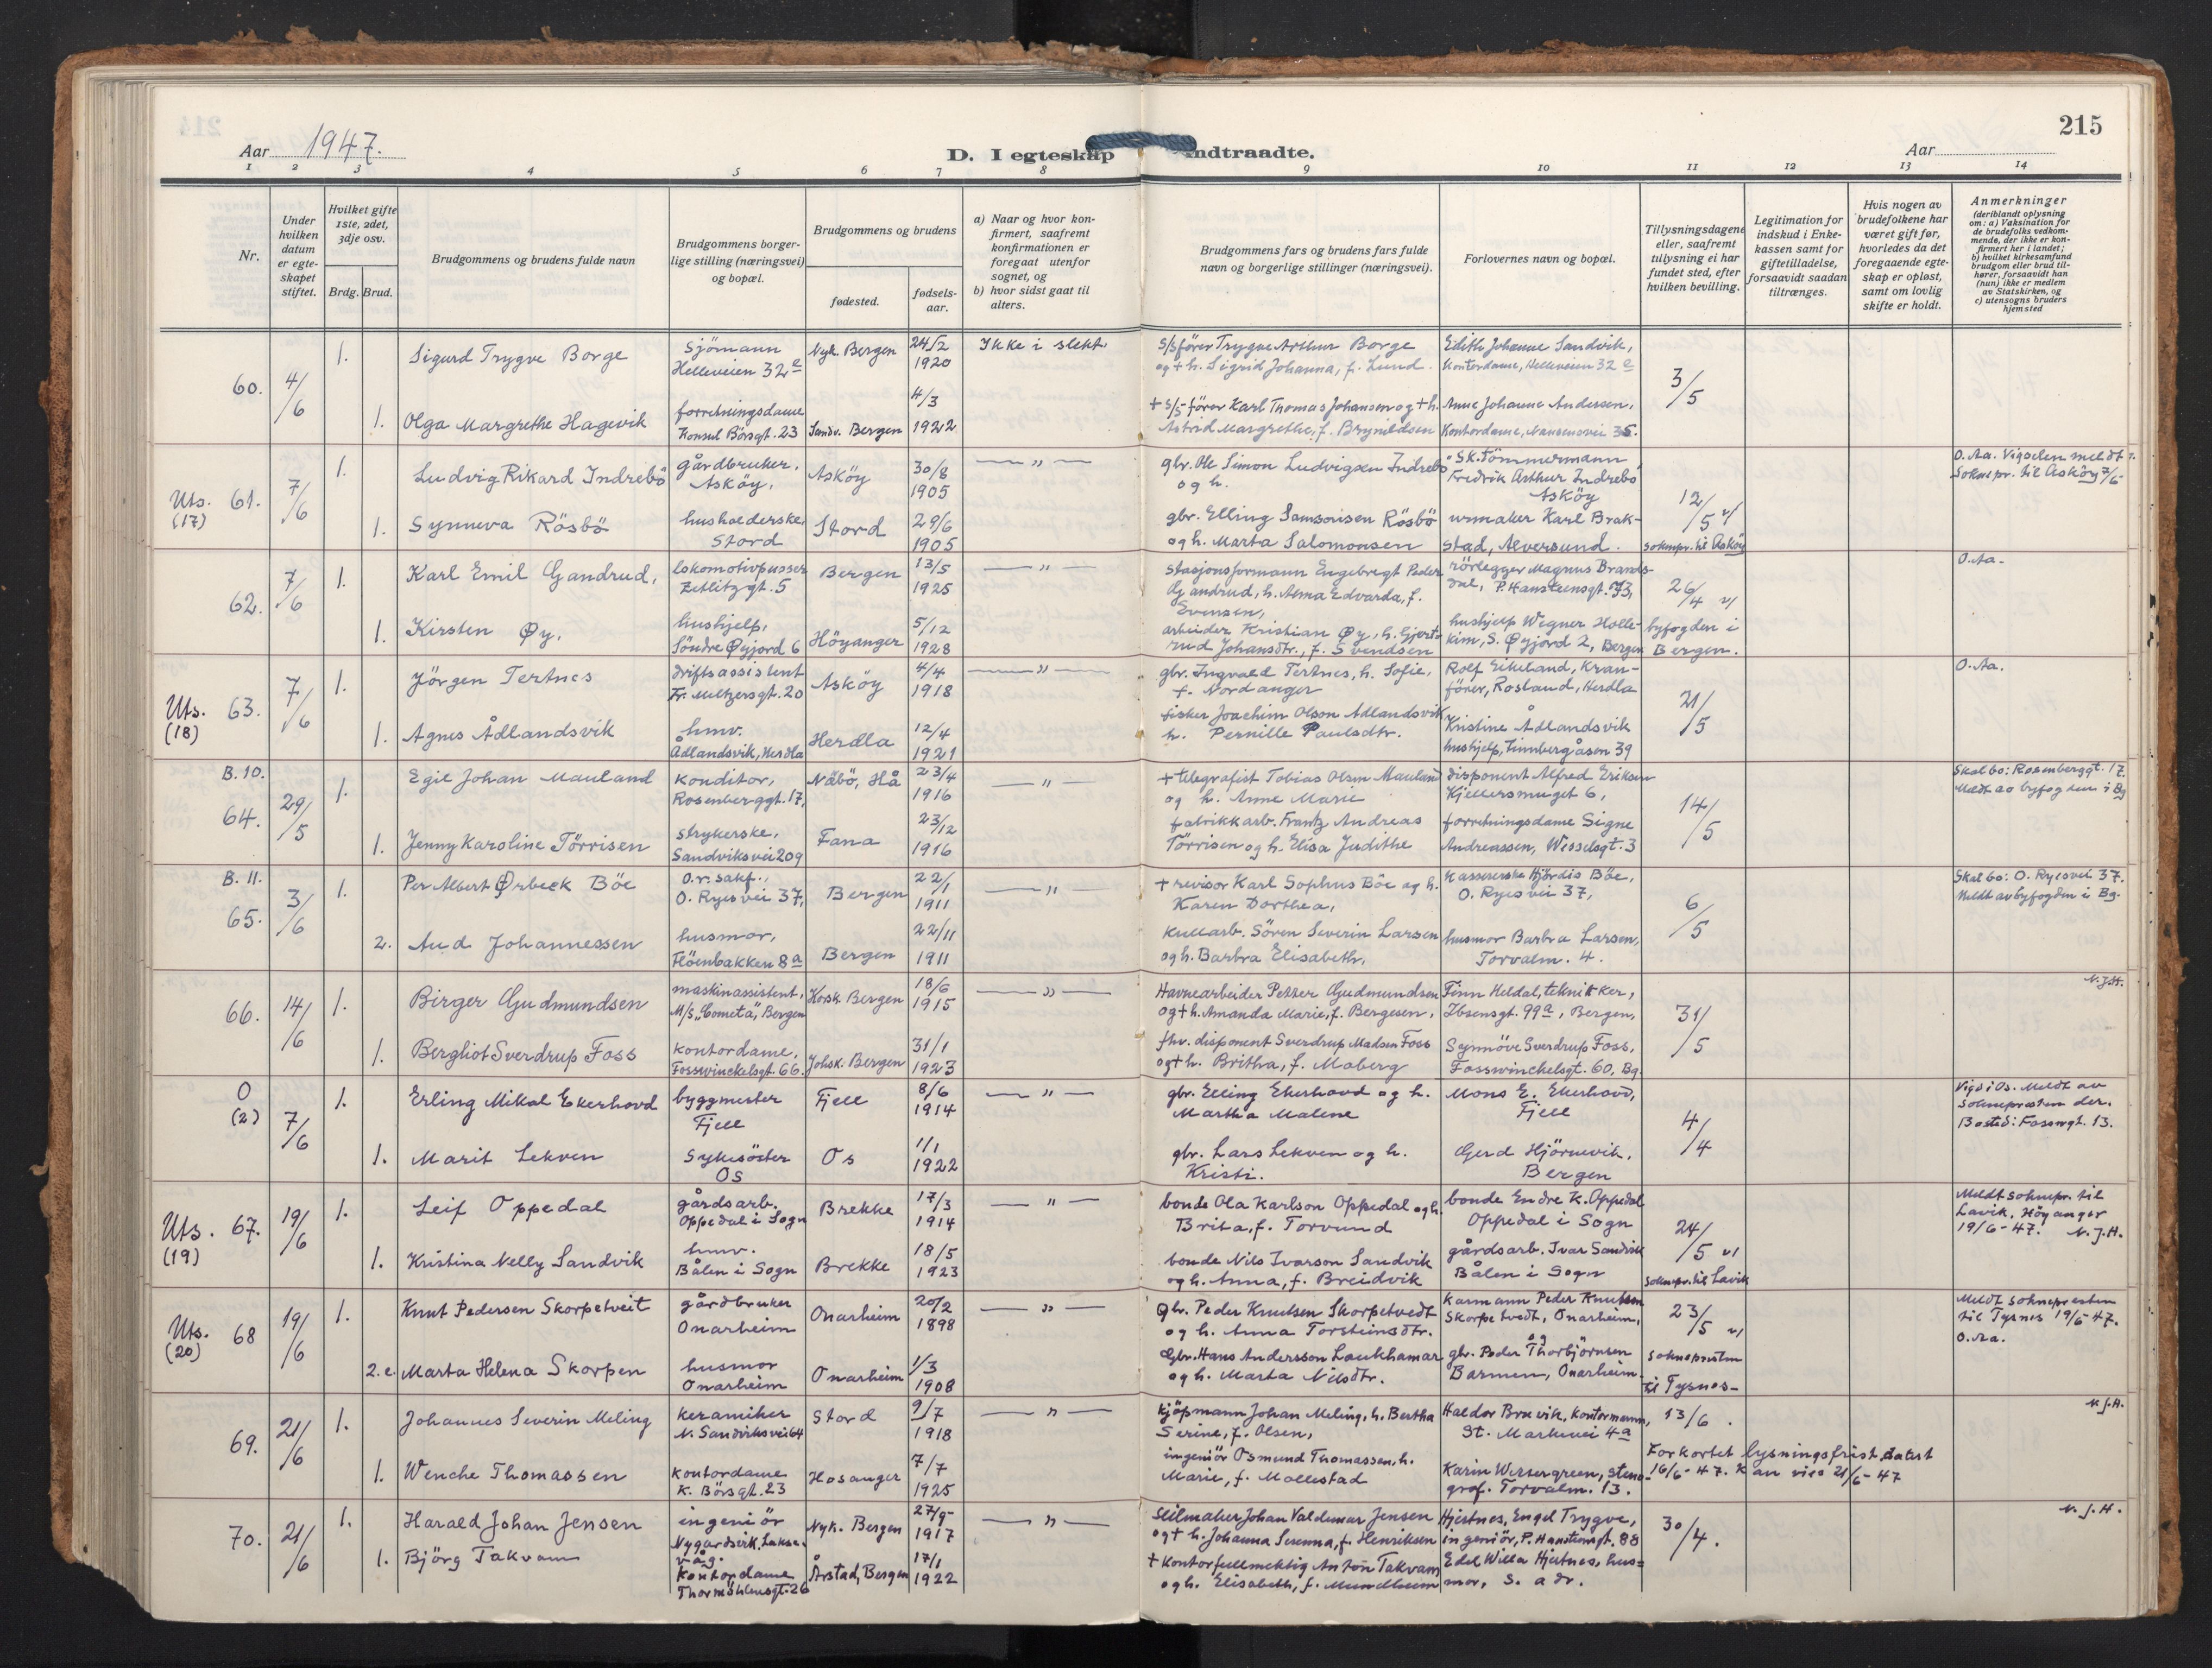 215
Aar 1947.
D. I egteskap indtraadte.
Aar
1 2 3 4 5 6 7 8 9 10 11 12 13 14
Nr.
Under hvilken datum er egteskapet stiftet.
Hvilket gifte 1ste, 2det, 3dje osv.
Brdg. Brud.
Brudgommens og brudens fulde navn
Brudgommens borgerlige stilling (næringsvei) og bopæl.
Brudgommens og brudens
fødested.
fødselsaar.
a) Naar og hvor konfirmert, saafremt konfirmationen er foregaat utenfor sognet, og
b) hvor sidst gaat til alters.
Brudgommens fars og brudens fars fulde navn og borgerlige stillinger (næringsvei).
Forlovernes navn og bopæl.
Tillysningsdagene eller, saafremt tillysning ei har fundet sted, efter hvilken bevilling.
Legitimation for indskud i Enkekassen samt for giftetilladelse, forsaavidt saadan tiltrænges.
Hvis nogen av brudefolkene har været gift før, hvorledes da det foregaaende egteskap er opløst, samt om lovlig skifte er holdt.
Anmerkninger
(deriblandt oplysning om: a) Vaksination for de brudefolks vedkommende, der ikke er konfirmert her i landet; b) hvilket kirkesamfund brudgom eller brud tilhører, forsaavidt han (hun) ikke er medlem av Statskirken, og c) utensogns bruders hjemsted
60. 4/6 1. Sigurd Trygve Borge
Sjömann Helleveien 32 e
Nyk. Bergen 24/2 1920
Ikke i slekt.
S/S förer Trygve Arthur Borge og + h. Sigrid Johanna, f. Lund.
Edith Johanne Sandvik, Kontordame, Helleveien 32 e
3/5
1. Olga Margrethe Hagevik
forretningsdame Konsul Börsgt. 23
Sandv. Bergen 4/3 1922
+ S/S-förer Karl Thomas Johansen og + h. Astrid Margrethe, f. Brynildsen
Anne Johanne Andersen, Kontordame, Nansensvei 35.
Uts. (17) 61. 7/6 1. Ludvig Rikard Indrebö
gårdbruker, Asköy.
Asköy 30/8 1905
— " —
gbr. Ole Simon Ludvigsen Indrebö og h.
Sk.tömmermann Fredrik Arthur Indrebö Asköy
12/5 v/ soknepr. til Asköy
O. Aa. Vigselen meldt Soknepr. til Asköy 7/6
1. Synneva Rösbö
husholderske, Stord
Stord 29/6 1905
gbr. Elling Samsonsen Rösbö og h. Marta Salomonsen
urmaker Karl Brakstad, Alversund.
62. 7/6 1. Karl Emil Gandrud,
lokomotivpusser Zetlitzgt. 5
Bergen 13/5 1925
— " —
Stasjonsformann Engebregt Peder Gandrud, h. Alma Edvarda, f. Evensen,
rörlegger Magnus Brandsdal, P. Hansteensgt. 73,
26/4 v/ byfogden i Bergen.
O. Aa.
1. Kirsten Øy.
hushjelp, Söndre Øyjord 6
Höyanger 5/12 1928
arbeider Kristian Øy, h. Gjertrud Johansdtr., f. Svendsen
hushjelp Wegner Hollekim, S. Øyjord 2, Bergen
Uts. (18) 63. 7/6 1. Jörgen Tertnes
driftsassistent Fr. Meltzersgt. 20
Asköy 4/4 1918
— " —
gbr. Ingvald Tertnes, h. Sofie, f. Nordanger
Rolf Eikeland, Kranförer, Rosland, Herdla
21/5
O. Aa.
1. Agnes Ådlandsvik
hmv. Ådlandsvik, Herdla
Herdla 12/4 1921
fisker Joachim Olson Adlandsvik h. Pernille Paulsdtr.
Kristine Ådlandsvik hushjelp, Finnbergåsen 39
B. 10. 64. 29/5 1. Egil Johan Mauland
Konditor, Rosenberggt. 17,
Näbö, Hå 23/4 1916
— " —
+ telegrafist Tobias Olsen Mauland og h. Anne Marie
disponent Alfred Eriksen Kjellersmuget 6,
14/5
Skal bo: Rosenberggt. 17. Meldt av byfogden i Bg
1. Jenny Karoline Törrisen
strykerske, Sandviksvei 209
Fana 23/12 1916
fabrikkarb. Frantz Andreas Törrisen og h. Elisa Judithe
forretningsdame Signe Andreassen, Wesselsgt. 3
B. 11. 65. 3/6 1. Per Albert Ørbeck Böe
O.r. sakf., O. Ryes vei 37,
Bergen 22/1 1911
— " —
+ revisor Karl Sophus Böe og h. Karen Dorthea,
Kassererske Hjördis Böe, O. Ryes vei 37,
6/5
Skal bo: O. Ryesvei 37. Meldt av byfogden i Bg.
2. Aud Johannessen
husmor, Flöenbakken 8a
Bergen 22/11 1911
Kullarb. Sören Severin Larsen og h. Barbra Elisabeth,
husmor Barbra Larsen, Torvalm. 4.
66. 14/6 1. Birger Gudmundsen
maskinassistent, M/S "Cometa", Bergen
Korsk. Bergen 18/6 1915
— " —
Havnearbeider Petter Gudmundsen og + h. Amanda Marie, f. Bergesen,
Finn Heldal, tekniker, Ibsensgt. 99a, Bergen,
31/5
N.J.H.
1. Bergliot Sverdrup Foss
Kontordame, Fosswinckelsgt. 66.
Johsk. Bergen 31/1 1923
fhv. disponent Sverdrup Madsen Foss og + h. Britha, f. Moberg
Synnöve Sverdrup Foss, Fosswinckelsgt. 60, Bg.
O (2) 7/6 1. Erling Mikal Ekerhovd
byggmester Fjell
Fjell 8/6 1914
— " —
gbr. Elling Ekerhovd og h. Martha Malene
Mons E. Ekerhovd, Fjell
4/4
Vigd i Os. Meldt av Soknepresten der. Bosted: Fosswgt. 13.
1. Marit Lekven
Sykesöster Os
Os 1/1 1922
gbr. Lars Lekven og h. Kristi.
Gerd Hjörnevik, Bergen
Uts. (19) 67. 19/6 1. Leif Oppedal
gårdsarb. Oppedal i Sogn
Brekke 17/3 1914
— " —
bonde Ola Karlson Oppedal og h. Brita, f. Torvund
bonde Endre K. Oppedal Oppedal i Sogn
24/5 v/ soknepr. til Lavik
Meldt soknepr. til Lavik, Höyanger 19/6-47. N.J.H.
1. Kristina Nelly Sandvik
hmv. Bålen i Sogn
Brekke 18/5 1923
bonde Nils Ivarson Sandvik og h. Anna, f. Breidvik
gårdsarb. Ivar Sandvik Bålen i Sogn
Uts. (20) 68 19/6 1. Knut Pedersen Skorpetveit
gårdbruker Onarheim
Onarheim 20/2 1898
— " —
Gbr. Peder Knutsen Skorpetvedt og h. Anna Torsteinsdtr.
Karmann Peder Knutsen Skorpetvedt, Onarheim, og
23/5 v/ soknepresten til Tysnes-
Meldt soknepresten til Tysnes 19/6-47. O. Aa.
2. e. Marta Helena Skorpen
husmor Onarheim
Onarheim 1/3 1908
Gbr. Hans Andersson Laukhamar og h. Marta Nilsdtr.
gbr. Peder Thorbjörnsen Barmen, Onarheim.
69. 21/6 1. Johannes Severin Meling
Keramiker N. Sandviksvei 64
Stord 9/7 1918
— " —
Kjöpmann Johan Meling, h. Bertha Serine, f. Olsen,
Haldor Bruvik, Kontormann, St. Markevei 4a
13/6.
N.J.H.
1. Wenche Thomassen
Kontordame K. Börsgt. 23
Hosanger 7/7 1925
ingeniör Osmund Thomassen, h. Marie, f. Mollestad
Karin Westergreen, stenograf. Torvalm. 13.
Forkortet lysningsfrist datert 16/6-47. Kan vies 21/6-47
70. 21/6 1. Harald Johan Jensen
ingeniör Nygårdsvik, Laksevåg.
Nyk. Bergen 27/9 1917
— " —
Seilmaker Johan Valdemar Jensen og + h. Johanna Susanna, f. Henriksen
Hjertnes, Engel Trygve, ingeniör, P. Hansteensgt. 88
30/4.
N.J.H.
1. Björg Takvam
Kontordame Thormöhlensgt. 26
Årstad, Bergen 17/1 1922
+ Kontorfullmektig Anton Takvam og h. Elisabeth, f. Mundheim
Edel Willa Hjertnes, husmor, s. adr.